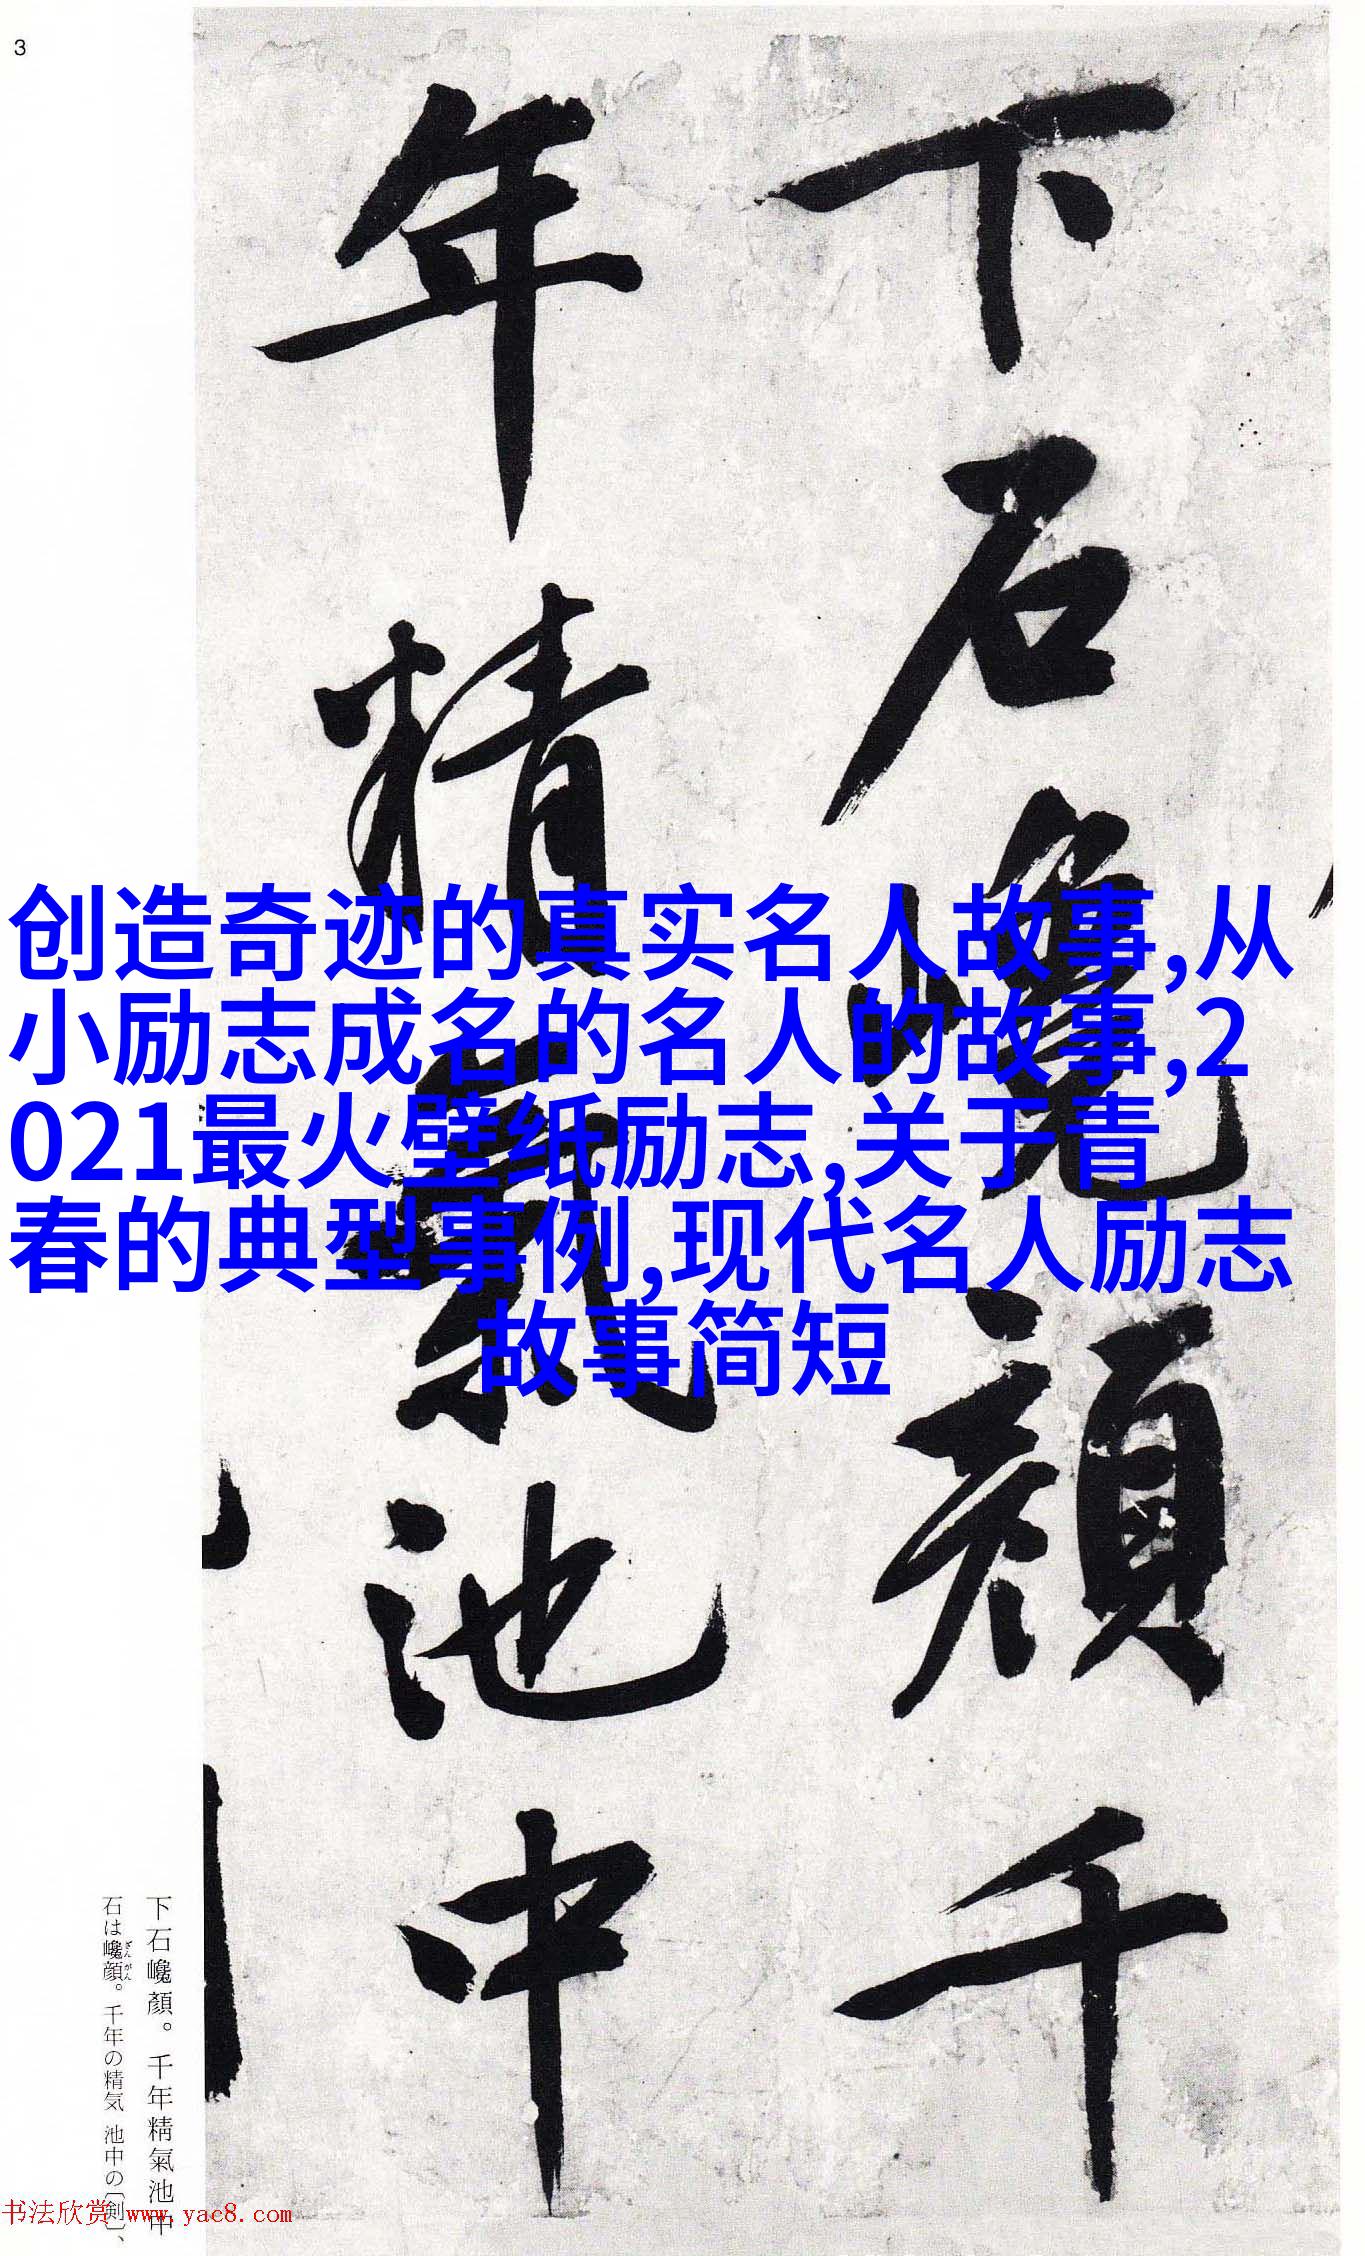 3
下石巉顔千
年精氣池中
创造奇迹的真实名人故事,从
小励志成名的名人的故事,2
021最火壁纸励志,关于青
春的典型事例,现代名人励志
故事简短
下石巉顏。千年精氣池中
石は巉顔。千年の精気 池中の〔剣〕、
ざんがん
书法欣赏 www.yac8.com